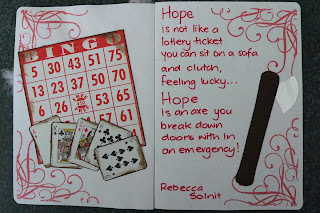 BINGO
5 30 43 51 75
13 20 32 60 64
2 24 52 66
13 40 54 67
6 26
Hope
is not like a
lottery ticket
you can sit on a sofa
and clutch,
feeling lucky...
Hope
is an axe you
break down
doors with in
an emergency!
Rebecca
Solnit